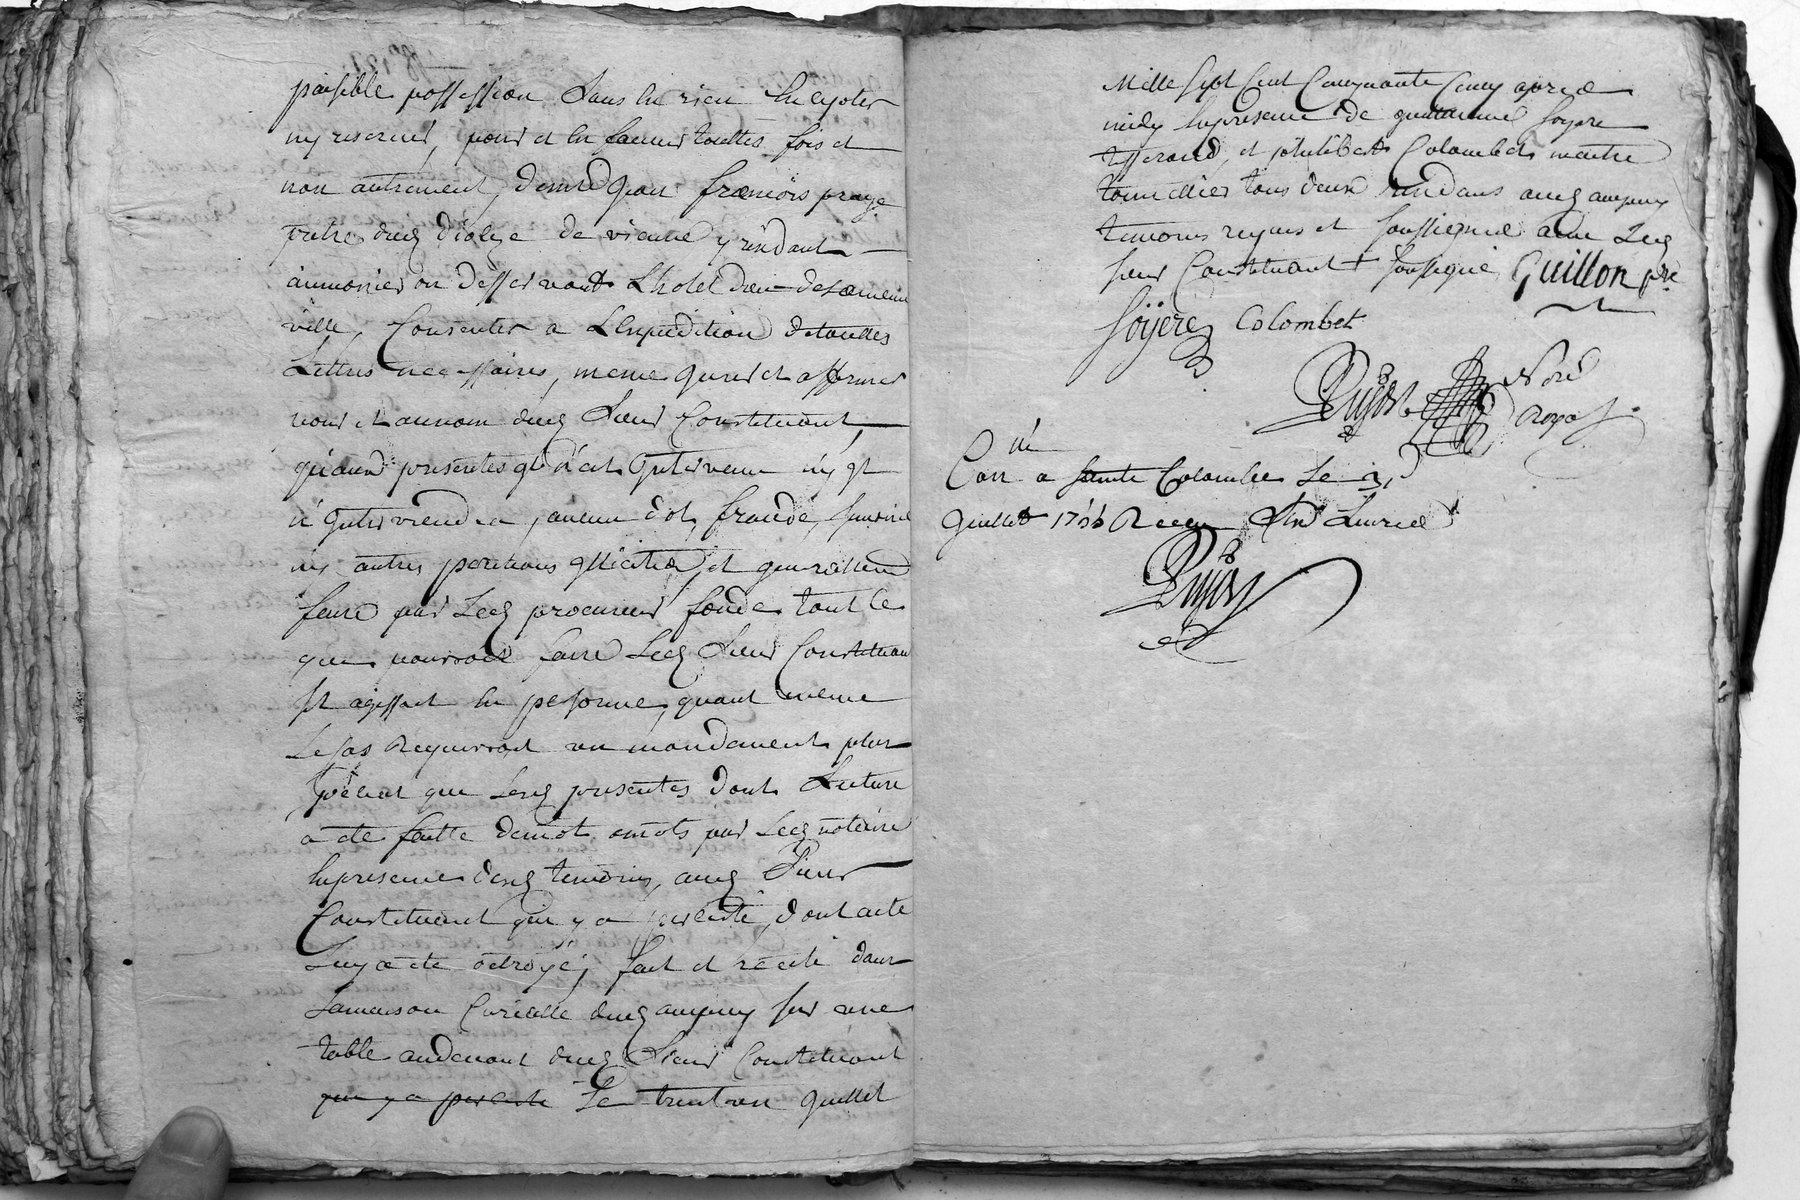 paisible possession sans en rien excepter
ny reserver, pour et en faveur touttes fois et
non autrement, de mre Jean francois
pretre dud diocèze de vienne y residant
aumonier ou desservant L'hotel dieu de la meme
ville, Consenter a L'Expedition de touttes
Lettres necessaires, meme jurer et affirmer
pour et au nom dud Sieur Constituant,
qu'aux presentes il n'est Intervenu ny
n'Interviendra, aucun dol, fraude, simonie
ny autres pactions illicites, et generallement
faire par Led procureur fondé tout ce
que pourroit faire Led Sieur Constituant
sy agissoit en personne, quant meme
Le cas Requerroit un mandement plus
special que Lesd presentes dont Lecture
a ete faitte de mot a mots par Led notaire
En presence desd temoins, aud Sieur
Constituant qui y a persisté, dont acte
Luy a ete octroyé; fait et recité dans
La maison Curialle dud ampuy sur une
table au devant dud Sieur Constituant
qui y a persisté Le trente un Juillet
Mille sept Cent Cinquante Cinq apres
midy En presence de guillaume soyere
tisserand, et philibert Colombet maitre
tonnellier tous deux residans aud ampuy
temoins requis et soussignés avec Led
sieur Constituant soussigné Guillon ptre
Soÿere Colombet
Dujast Nore
Royal
Con
a Sainte Colombe Le 31
Juillet 1755 Reçu
Dujast